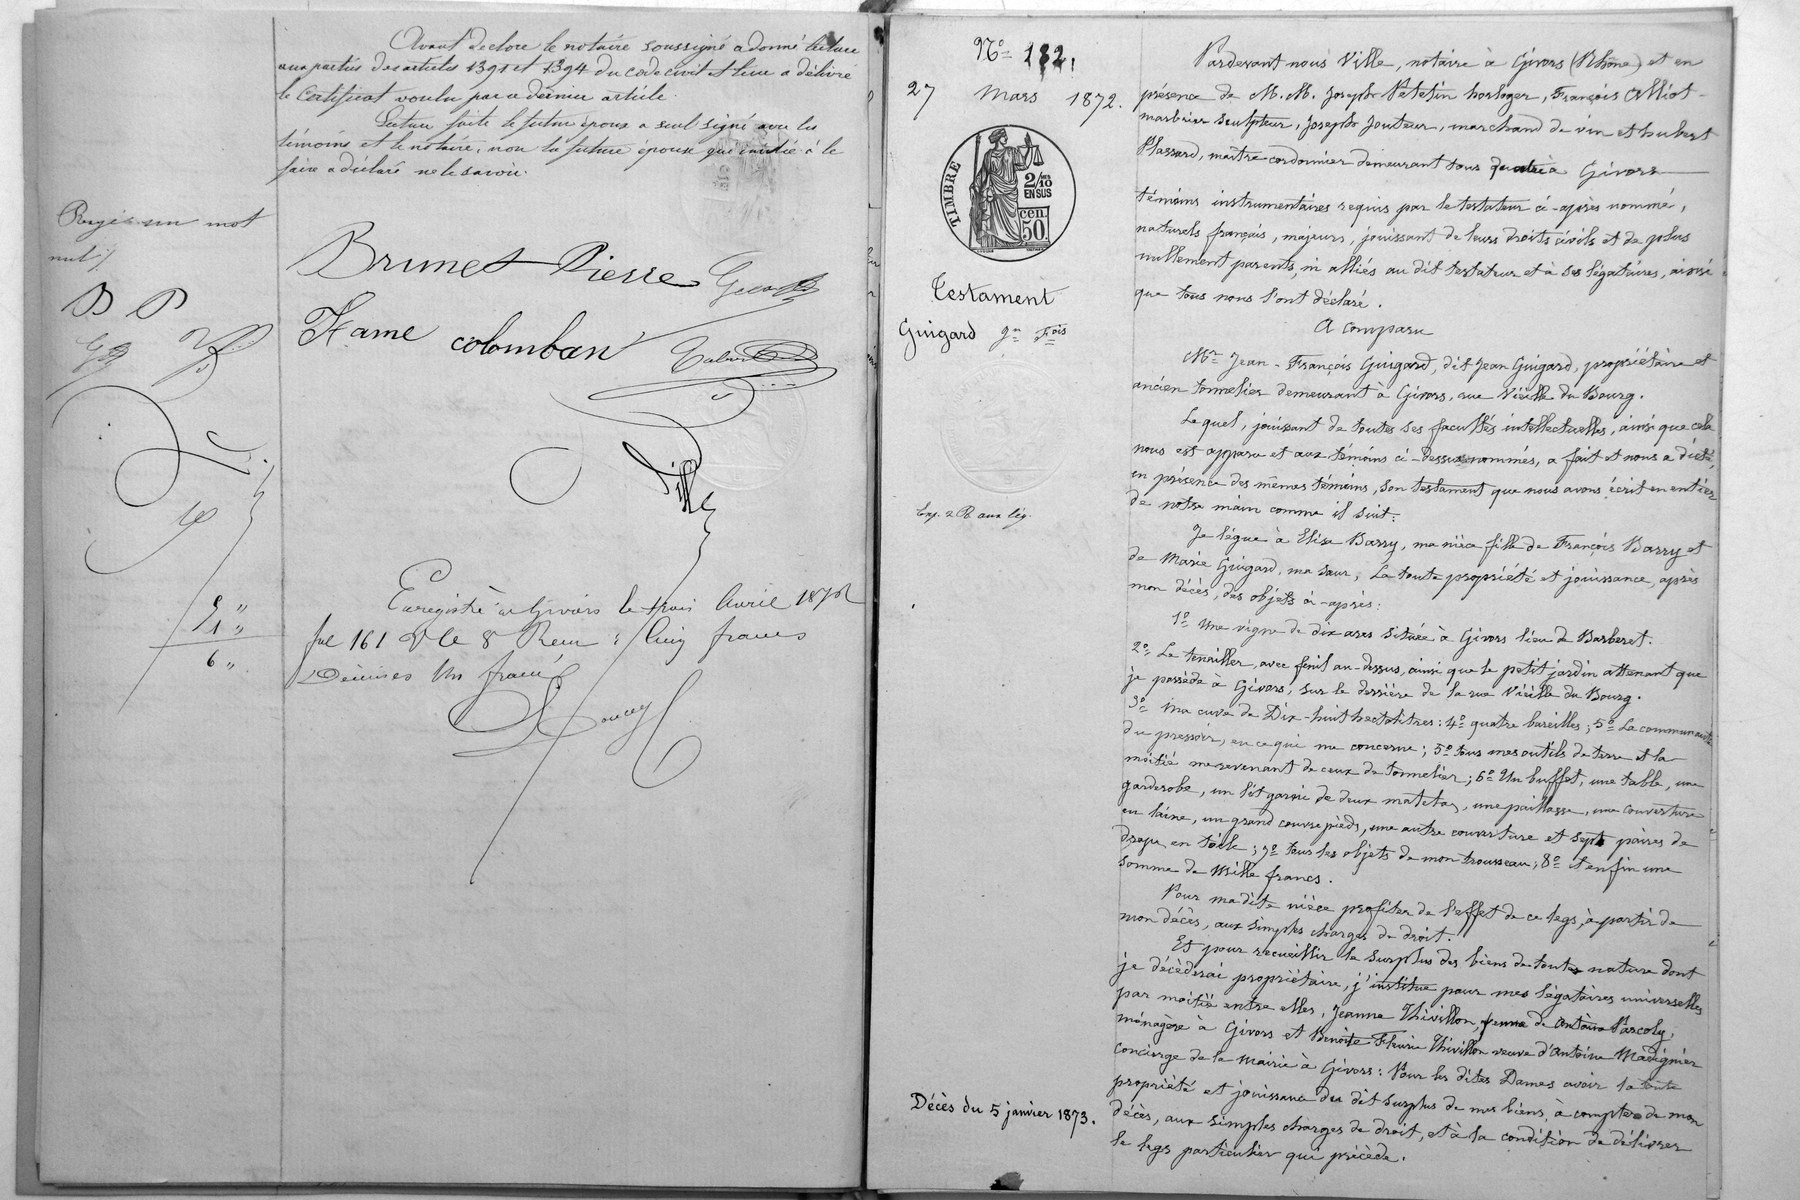 Avant de clore le notaire soussigné a donné lecture
aux parties des articles 1391 et 1394 du code civil et leur a délivré
le certificat voulu par ce dernier article.
Lecture faite le futur époux a seul signé avec les
témoins et le notaire, non la future épouse qui invitée à le
faire a déclaré ne le savoir.
Rayé un mot
nul
B P
Brunet Pierre
Hame colomban
Ville
Enregistré à Givors le trois Avril 1872
fol 161 V° C 8 Reçu : Cinq francs
Décimes Un franc
5 "
1 "
6 "
N° 182.
27 Mars 1872.
TIMBRE
2/10
EN SUS
cen.
50
Testament
Guigard Jn Fois
Exp. 2 R aux lég.
Décès du 5 janvier 1873.
Pardevant nous Ville, notaire à Givors (Rhône) et en
présence de M.M. Joseph Petetin horloger, François Alliot
marbrier sculpteur, Joseph Jouteur, marchand de vin et hubert
Plassard, maître cordonnier demeurant tous quatre à Givors
témoins instrumentaires requis par le testateur ci-après nommé,
naturels français, majeurs, jouissant de leurs droits civils et de plus
nullement parents, ni alliés au dit testateur et à ses légataires, ainsi
que tous nous l'ont déclaré.
A comparu
Mr Jean-François Guigard, dit Jean Guigard, propriétaire et
ancien tonnelier demeurant à Givors, rue Vieille du Bourg.
Lequel, jouissant de toutes ses facultés intellectuelles, ainsi que cela
nous est apparu et aux témoins ci-dessus nommés, a fait et nous a dicté,
en présence des mêmes témoins, son testament que nous avons écrit en entier
de notre main comme il suit:
Je lègue à Elisa Barry, ma nièce fille de François Barry et
de Marie Guigard, ma sœur, La toute propriété et jouissance, après
mon décès, des objets ci-après:
1° Une vigne de dix ares située à Givors lieu de Barberet.
2° Le tenailler, avec fenil au-dessus, ainsi que le petit jardin attenant que
je possède à Givors, sur le derrière de la rue Vieille du Bourg.
3° Ma cuve de Dix-huit hectolitres: 4° quatre bareilles; 5° La communauté
du pressoir, en ce qui me concerne; 5° tous mes outils de terre et la
moitié me revenant de ceux de tonnelier; 6° Un buffet, une table, une
garderobe, un lit garni de deux matelas, une paillasse, une couverture
en laine, un grand couvre pieds, une autre couverture et sept paires de
draps en toile; 7° tous les objets de mon trousseau; 8° et enfin une
somme de Mille francs.
Pour ma dite nièce profiter de l'effet de ce legs, à partir de
mon décès, aux simples charges de droit.
Et pour recueillir le surplus des biens de toutes nature dont
je décèderai propriétaire, j'institue pour mes légataires universelles
par moitié entre elles, Jeanne Thivillon, femme de Antoine Pascoly,
ménagère à Givors et Benoîte Fleurie Thivillon veuve d'Antoine Madignier
concierge de la Mairie à Givors: Pour les dites Dames avoir la toute
propriété et jouissance du dit surplus de mes biens à compter de mon
décès, aux simples charges de droit, et à la condition de délivrer
le legs particulier qui précède.